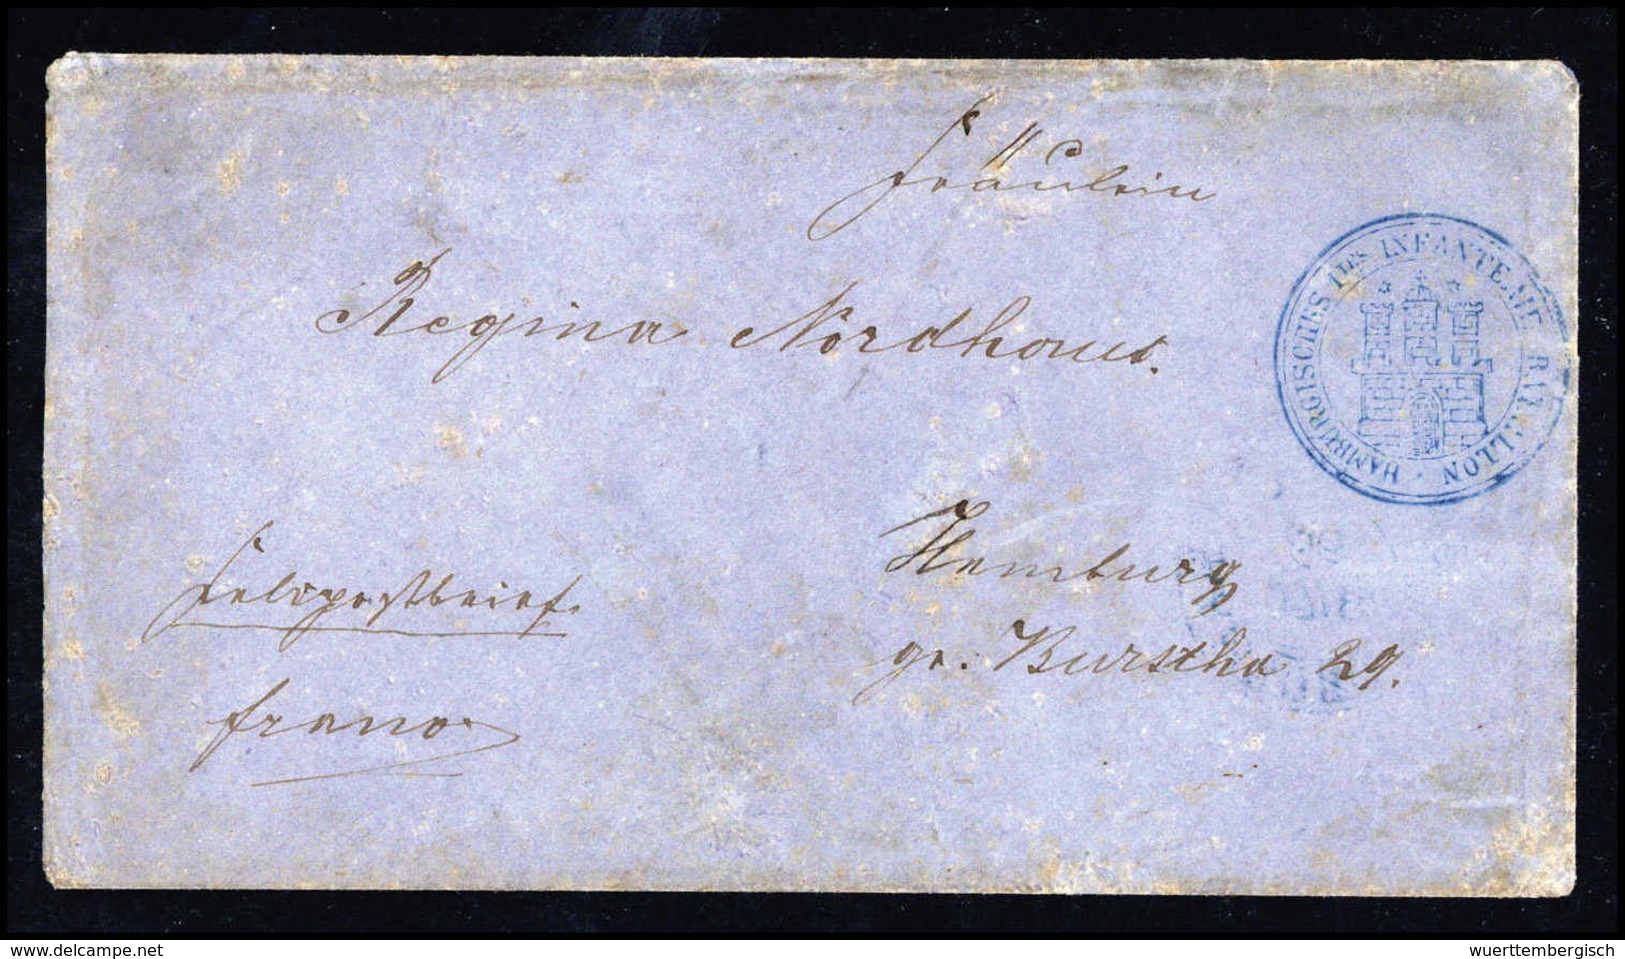 Fräulein
Regina Nordhaus.
HAMBURGISCHES 1tes INFANTERIE BATAILLON
Hamburg
gr. Burstha 29.
Feldpostbrief.
franco
www.delcampe.net
wuerttembergisch